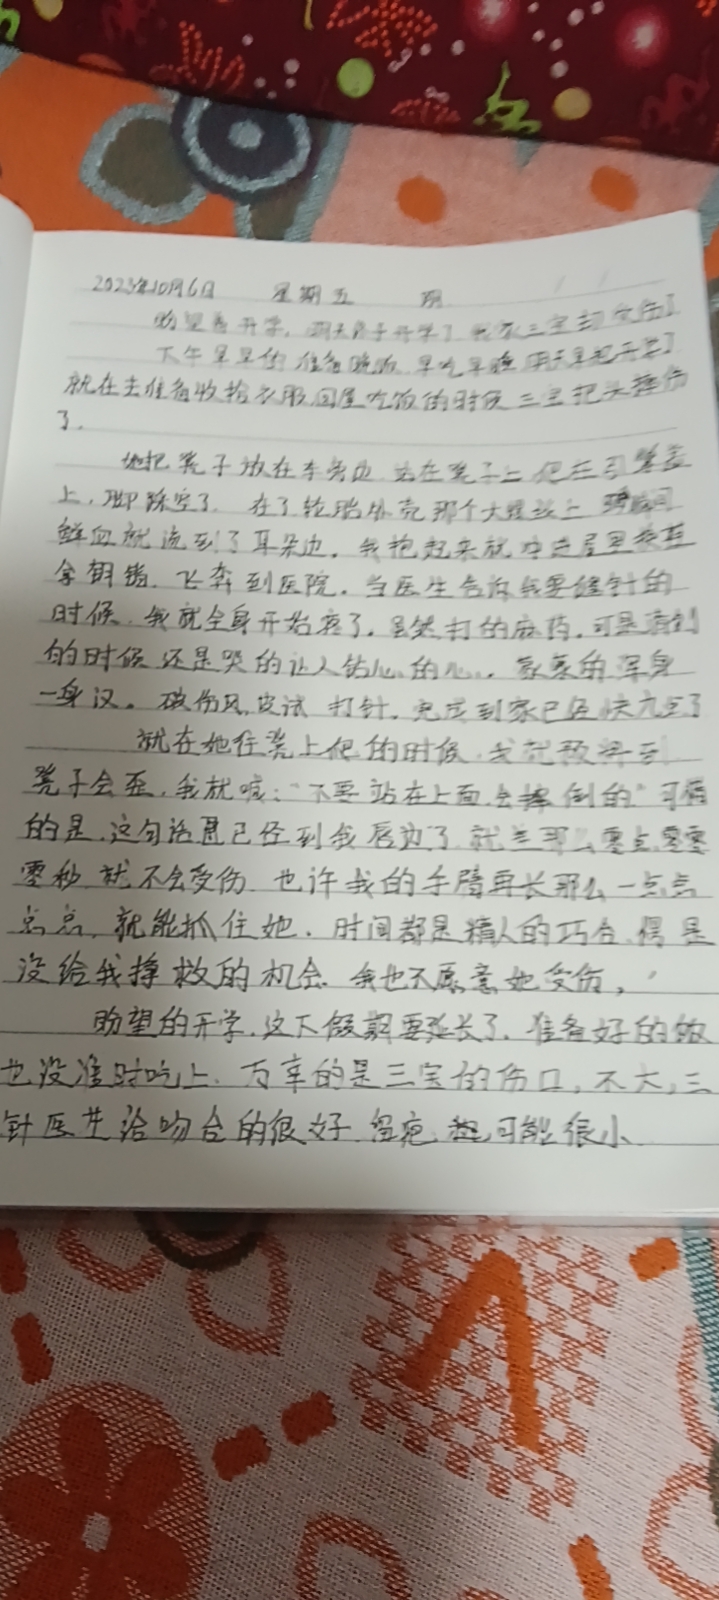 2023年10月6日 星期五 阴
盼望着开学,明天终于开学了 我家三宝却受伤了
下午早早的准备晚饭 早吃早睡 明天早起开学了
就在去准备收拾衣服回屋吃饭的时候 三宝把头摔伤
了.
她把凳子放在车旁边 站在凳子上 爬在引擎盖
上,脚踩空了 在了轮胎外壳那个大螺丝上 瞬间
鲜血就流到了耳朵边,我抱起来就冲进屋里
拿钥匙 飞奔到医院,当医生告诉我要缝针的
时候,我就全身开始疼了,虽然打的麻药,可是
的时候还是哭的让人钻心的心, 浑身
一身汉。破伤风皮试 打针,完成到家已经快九点了
就在她往凳上爬的时候,我就预料到
凳子会歪,我就喊:“不要站在上面会摔倒的”可惜
的是,这句话是已经到我唇边了 就差那么零点零零
零秒 就不会受伤 也许我的手臂再长那么一点点
点点,就能抓住她,时间都是精人的巧合,偶是
没给我挣救的机会 我也不愿意她受伤,
盼望的开学,这下假期要延长了,准备好的饭
也没准时吃上,万幸的是三宝的伤口,不大,三
针医生给吻合的很好 留疤 可能很小